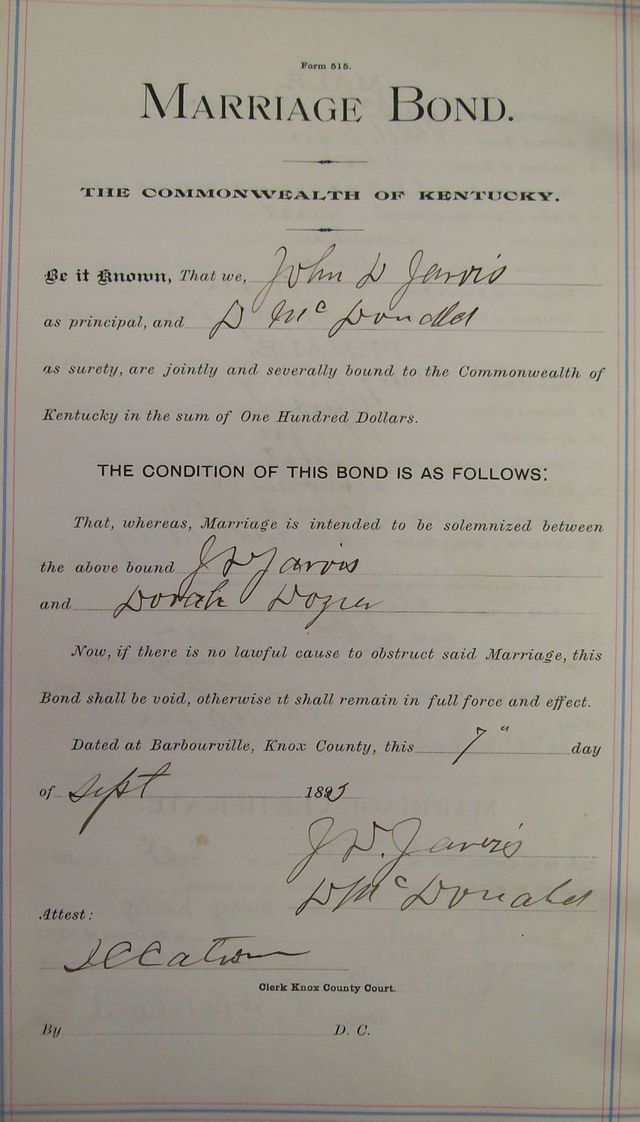 Form 515.
MARRIAGE BOND.
THE COMMONWEALTH OF KENTUCKY.
Be it Known, That we, John D Jarvis
as principal, and D McDonald
as surety, are jointly and severally bound to the Commonwealth of
Kentucky in the sum of One Hundred Dollars.
THE CONDITION OF THIS BOND IS AS FOLLOWS:
That, whereas, Marriage is intended to be solemnized between
the above bound J D Jarvis
and Dorah
Now, if there is no lawful cause to obstruct said Marriage, this
Bond shall be void, otherwise it shall remain in full force and effect.
Dated at Barbourville, Knox County, this 7" day
of Sept 189
J D. Jarvis
D McDonald
Attest:
Clerk Knox County Court.
By D. C.